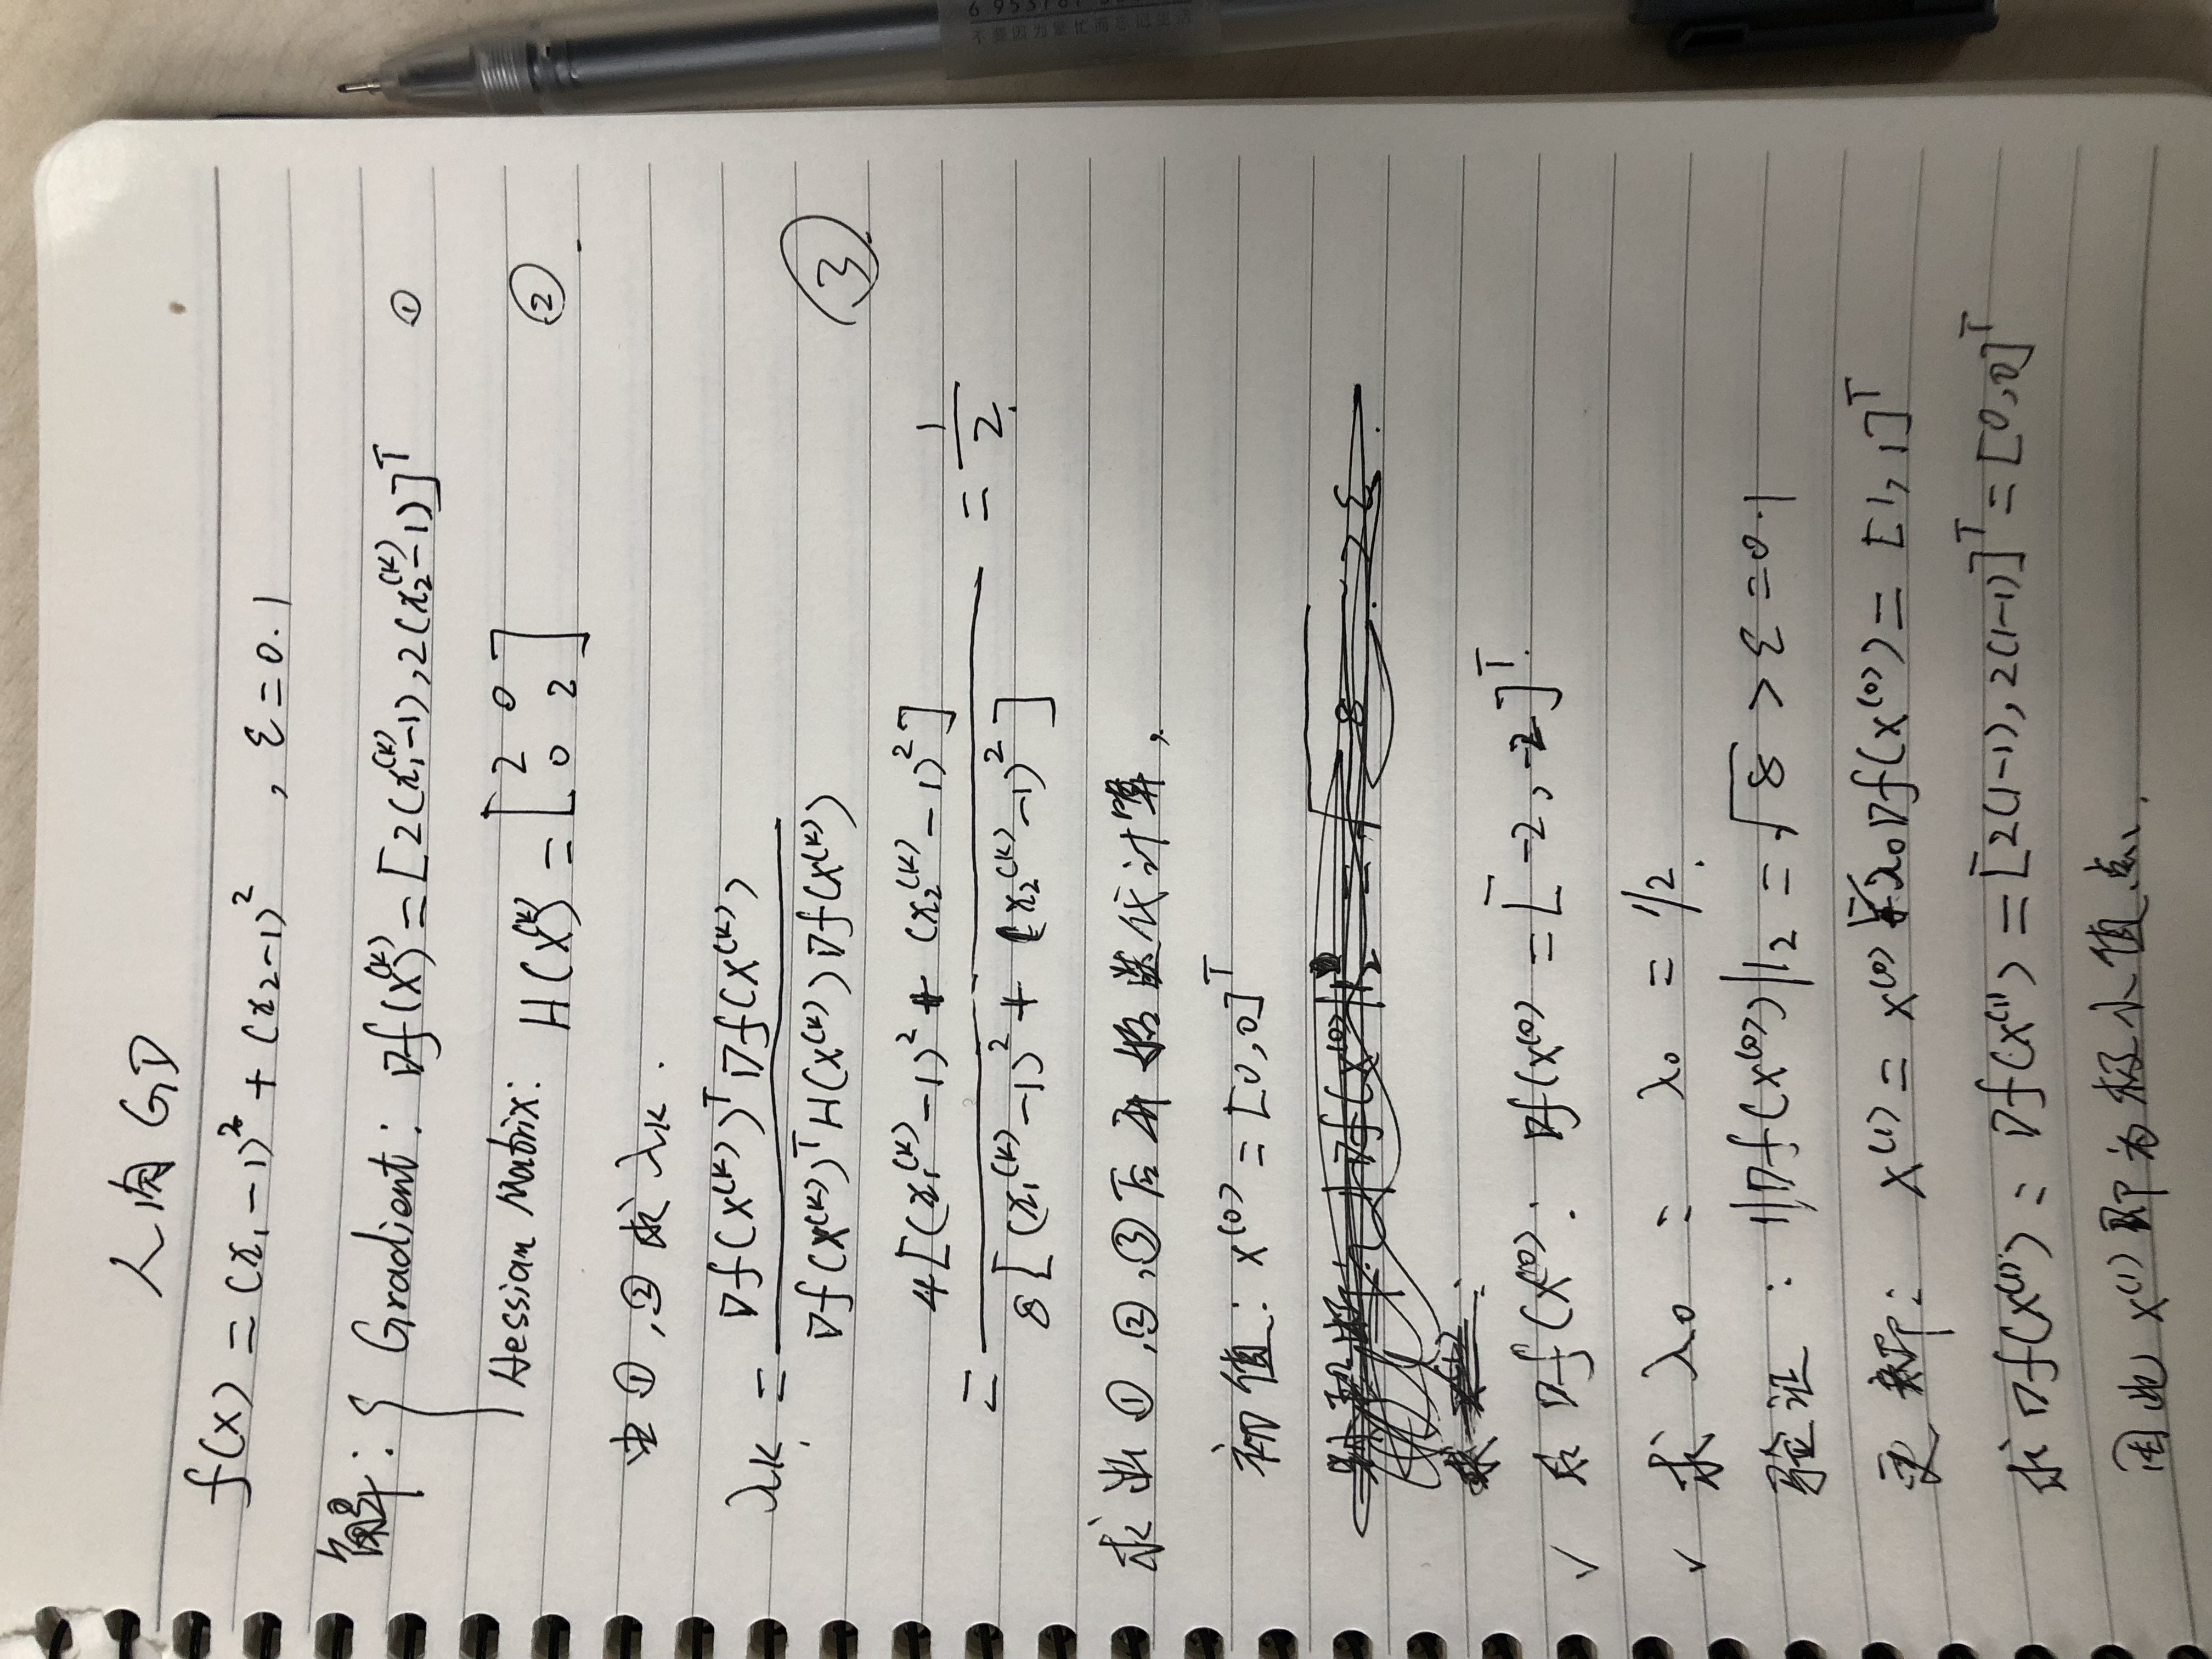 人肉 GD
f(x) = (x₁-1)² + (x₂-1)² , ε=0.1
解: { Gradient: ∇f(x⁽ᵏ⁾) = [2(x₁⁽ᵏ⁾-1), 2(x₂⁽ᵏ⁾-1)]ᵀ ①
Hessian Matrix: H(x⁽ᵏ⁾) = [2 0; 0 2] ②.
由①,②求 λₖ.
λₖ = ∇f(x⁽ᵏ⁾)ᵀ∇f(x⁽ᵏ⁾) / ∇f(x⁽ᵏ⁾)ᵀH(x⁽ᵏ⁾)∇f(x⁽ᵏ⁾) ③.
= 4[(x₁⁽ᵏ⁾-1)² + (x₂⁽ᵏ⁾-1)²] / 8[(x₁⁽ᵏ⁾-1)² + (x₂⁽ᵏ⁾-1)²] = 1/2.
求出①,②,③后开始迭代计算,
初值: x⁽⁰⁾ = [0,0]ᵀ
✓ ∇f(x⁽⁰⁾): ∇f(x⁽⁰⁾) = [-2, -2]ᵀ.
✓ 求 λ₀ : λ₀ = 1/2.
验证 : ||∇f(x⁽⁰⁾)||₂ = √8 > ε = 0.1
更新: x⁽¹⁾ = x⁽⁰⁾ - λ₀∇f(x⁽⁰⁾) = [1, 1]ᵀ
求∇f(x⁽¹⁾): ∇f(x⁽¹⁾) = [2(1-1), 2(1-1)]ᵀ = [0,0]ᵀ
因此 x⁽¹⁾ 即为极小值点.